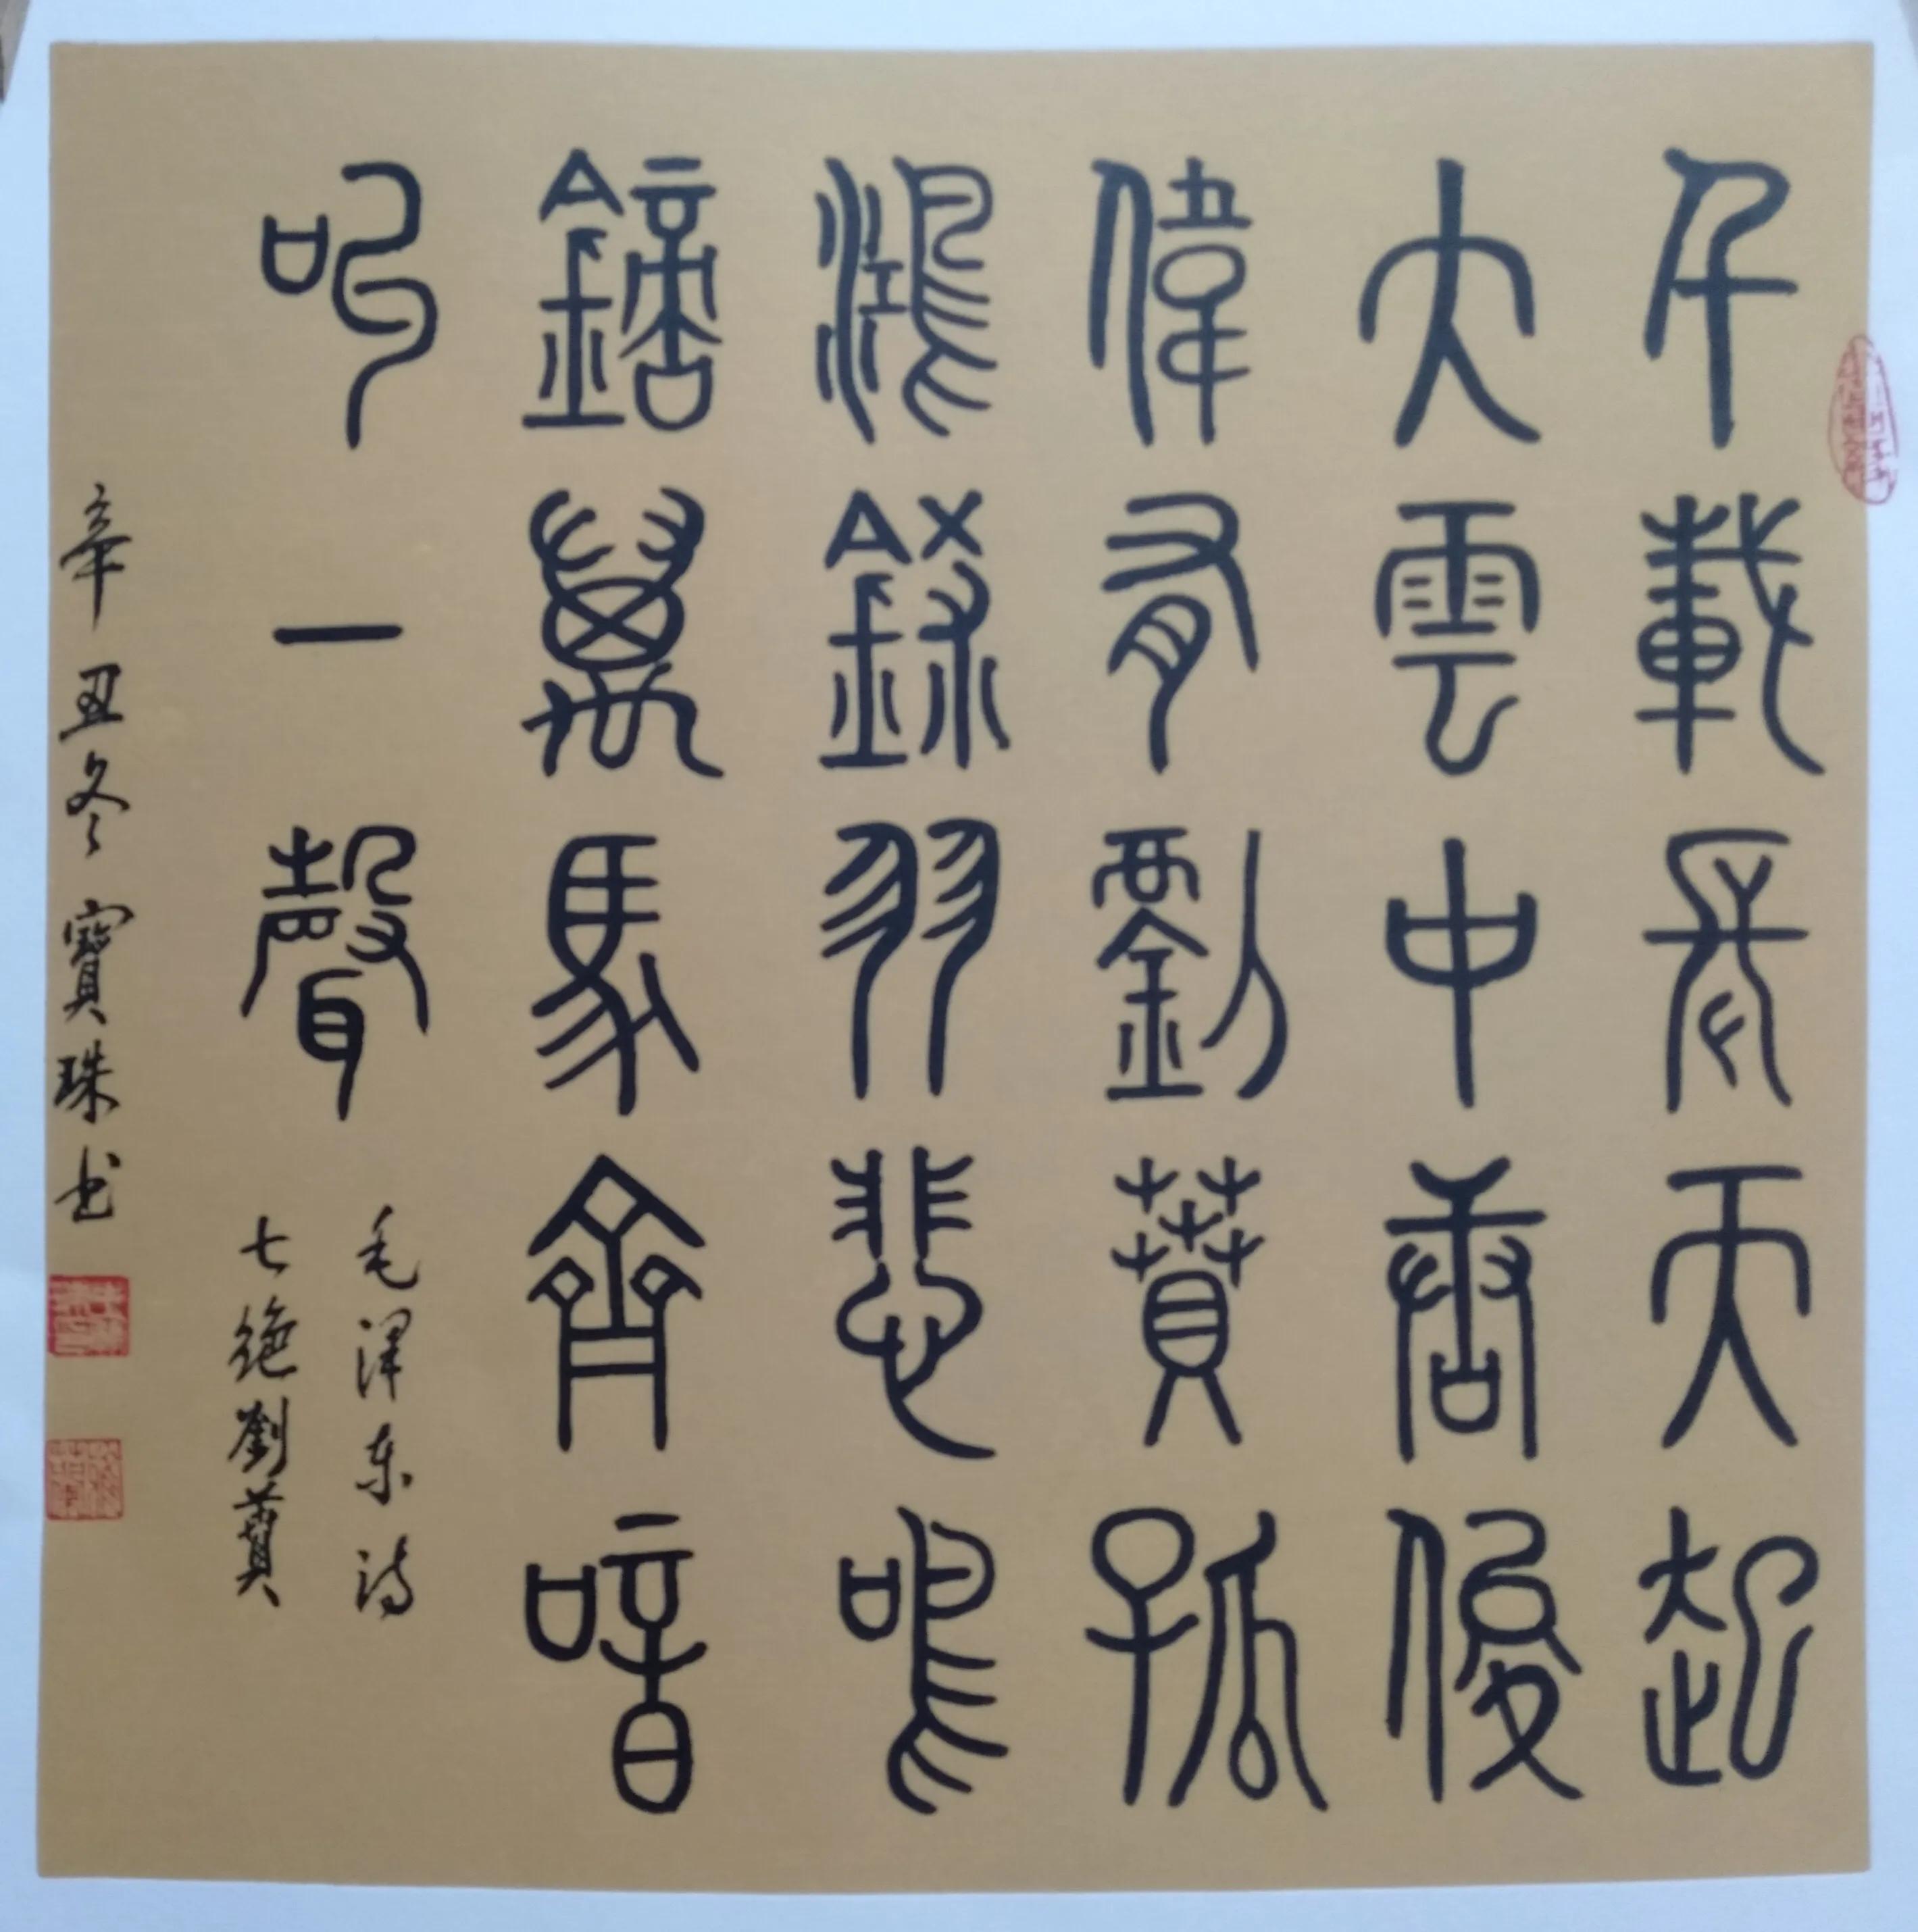 千載長天起
大雲中唐俊
偉有劉蕡孤
鴻鎩羽悲鳴
鏑萬馬齊喑
叫一聲
毛泽东诗
七絶劉蕡
辛丑冬寶珠书